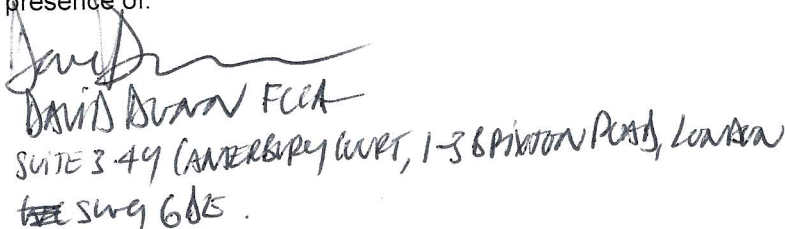 presence of:
DAVID DUNN FCCA
SUITE 3.49 CANTERBURY COURT, 1-3 BRIXTON ROAD, LONDON
SW9 6DE.